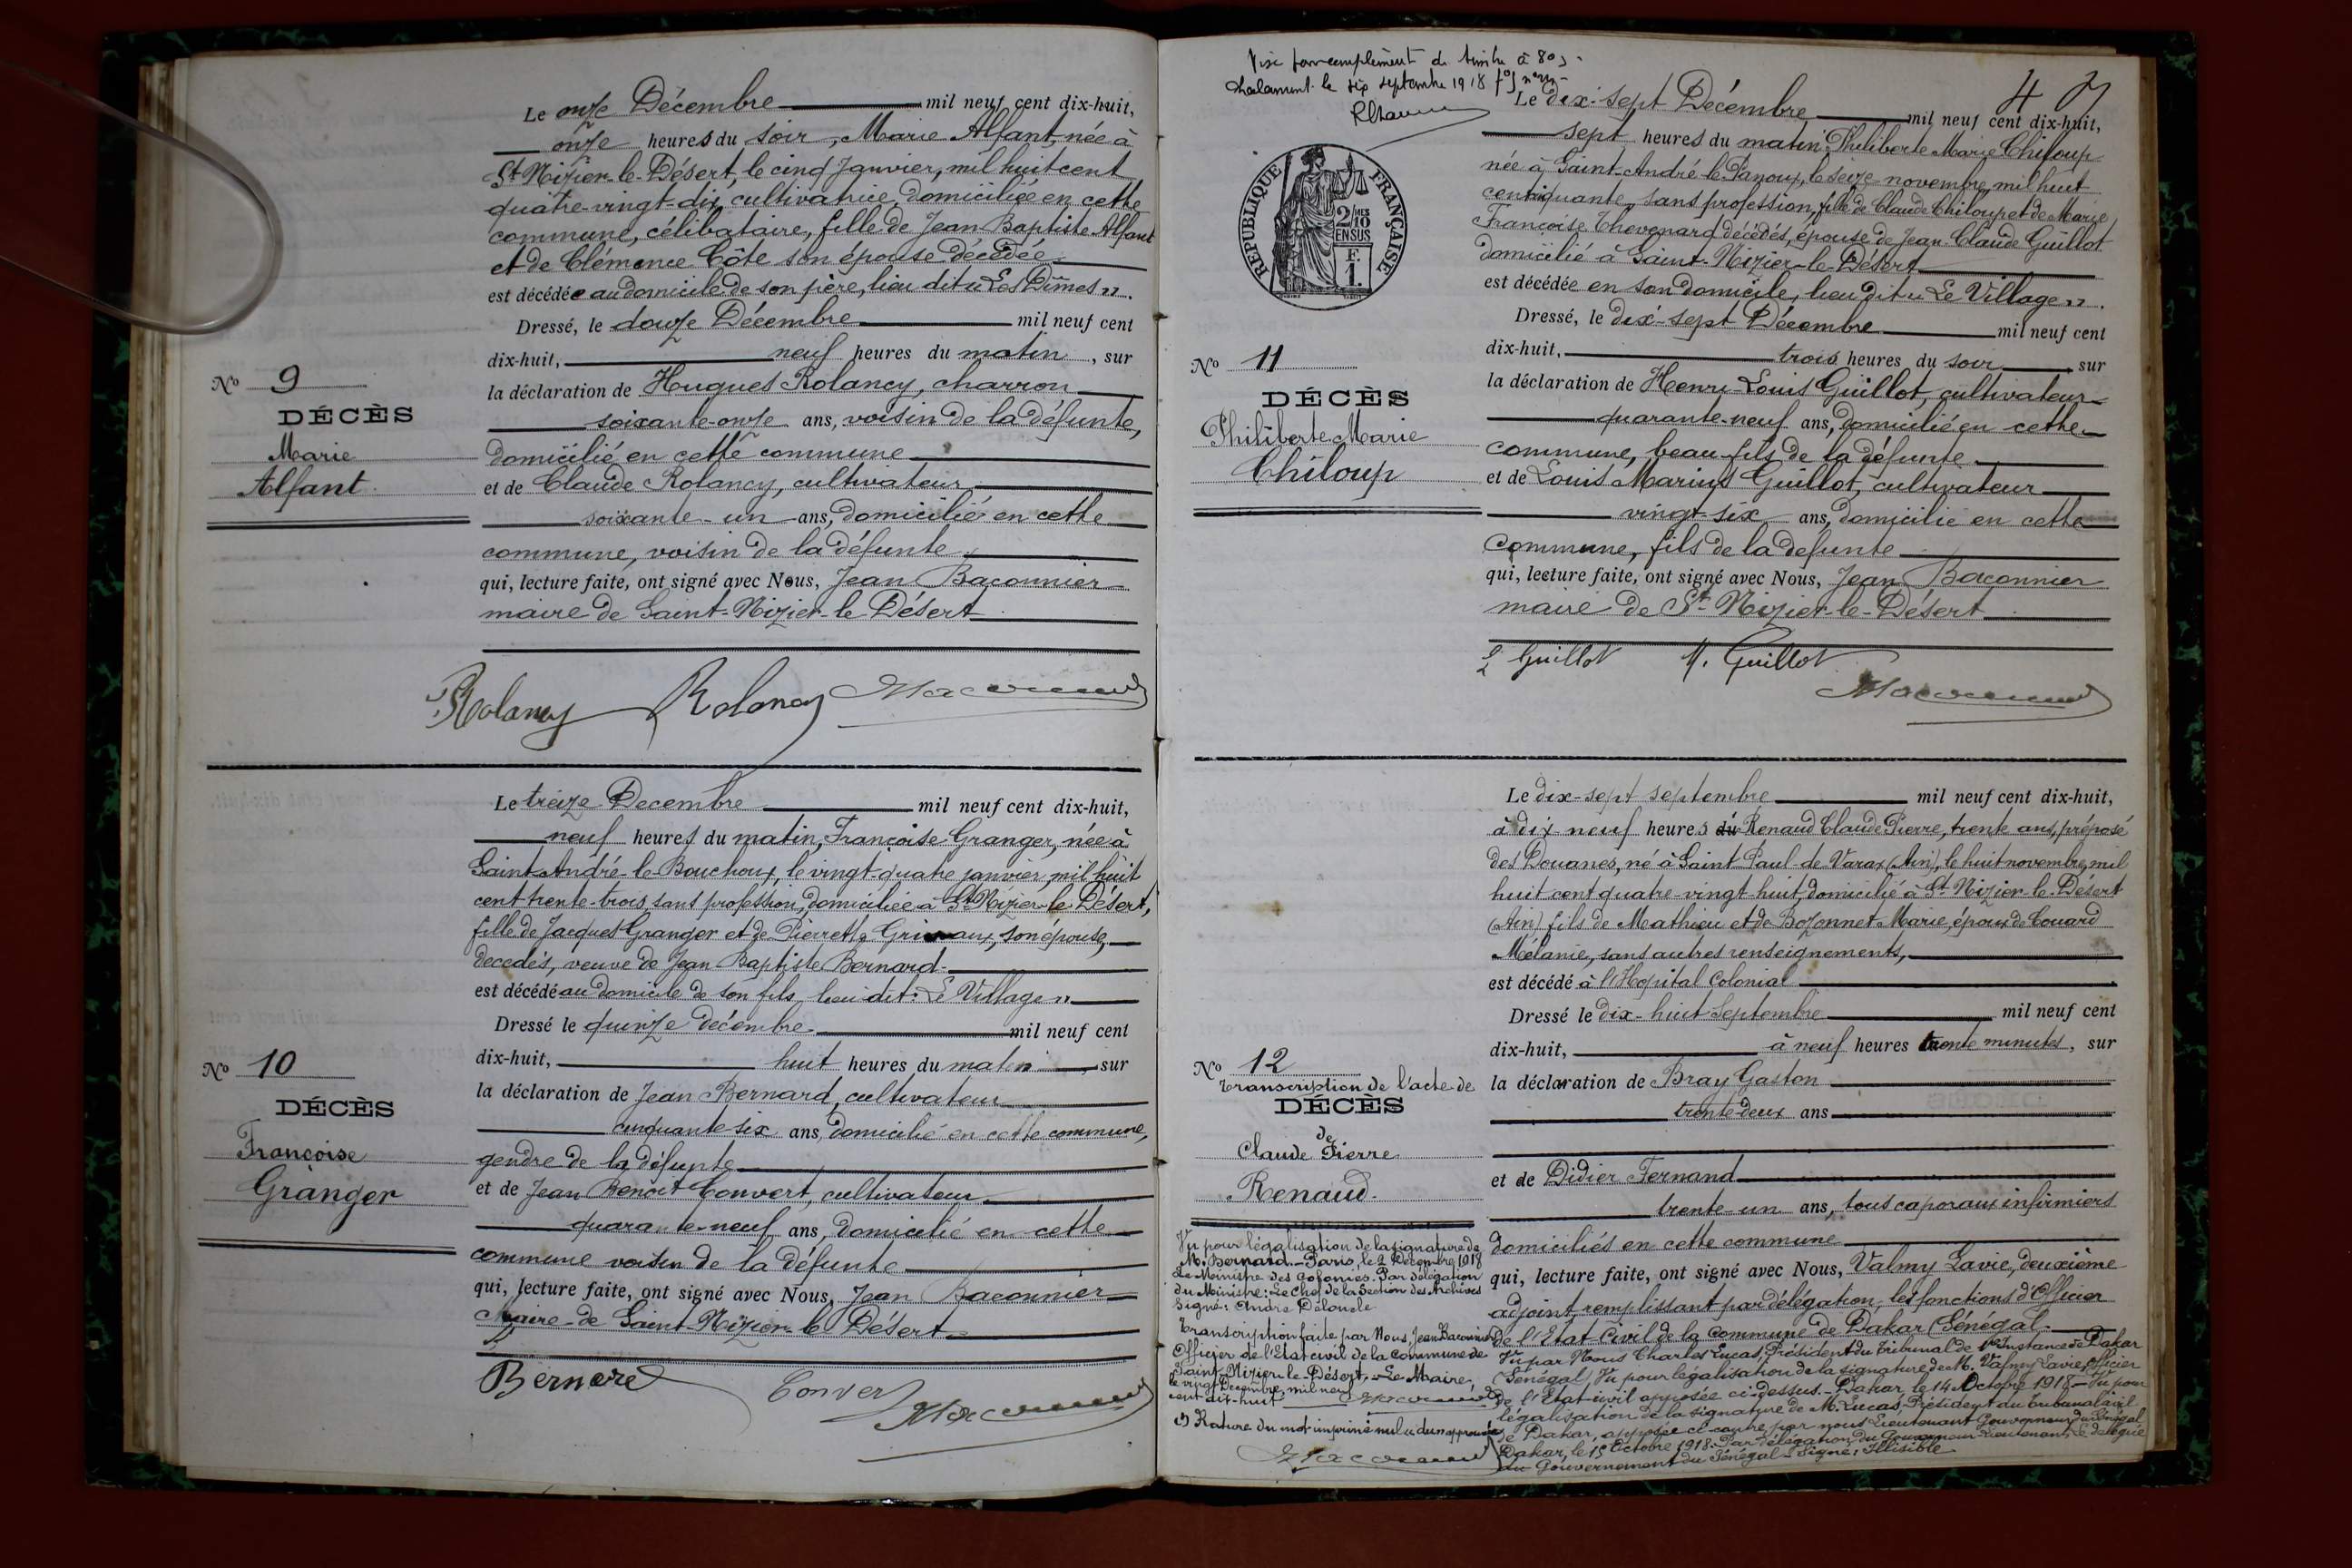 Le onze Décembre mil neuf cent dix-huit,
onze heures du soir, Marie Alfant, née à
St Nizier-le-Désert, le cinq Janvier, mil huit cent
quatre-vingt-dix, cultivatrice, domiciliée en cette
commune, célibataire, fille de Jean Baptiste Alfant
et de Clémence Côte son épouse décédée
est décédée au domicile de son père, lieu dit « Les Dîmes ».
Dressé, le douze Décembre mil neuf cent
dix-huit, neuf heures du matin, sur
la déclaration de Hugues Rolancy, charron
soixante-onze ans, voisin de la défunte,
domicilié en cette commune
et de Claude Rolancy, cultivateur
soixante-un ans, domicilié en cette
commune, voisin de la défunte.
qui, lecture faite, ont signé avec Nous, Jean Baconnier
maire de Saint-Nizier-le-Désert
No 9
DÉCÈS
Marie
Alfant.
Rolancy Rolancy
Le treize Decembre mil neuf cent dix-huit,
neuf heures du matin, Françoise Granger, née à
Saint-André-le-Bouchoux, le vingt-quatre janvier, mil huit
cent trente-trois, sans profession, domiciliée à St Nizier-le-Désert,
fille de Jacques Granger et de Pierrette, son épouse,
decedés, veuve de Jean Baptiste Bernard.
est décédé au domicile de son fils, lieu dit « Le Village »
Dressé le quinze decembre mil neuf cent
dix-huit, huit heures du matin, sur
la déclaration de Jean Bernard, cultivateur
cinquante-six ans, domicilié en cette commune,
gendre de la défunte
et de Jean Benoit Convert, cultivateur
quarante-neuf ans, domicilié en cette
commune voisin de la défunte
qui, lecture faite, ont signé avec Nous, Jean Baconnier
Maire de Saint-Nizier-le Désert
No 10
DÉCÈS
Françoise
Granger
Bernard Convert
Visé pour complément de timbre à 80
Chalamont le six septembre 1918
4
Le dix-sept Décembre mil neuf cent dix-huit,
sept heures du matin Philiberte Marie Chiloup
née à Saint-André-le-Panoux, le seize novembre, mil huit
cent cinquante, sans profession, fille de Claude Chiloup et de Marie
Françoise Thevenard décédés, épouse de Jean-Claude Guillot
domicilié à Saint-Nizier-le-Désert
est décédée en son domicile, lieu dit « Le Village ».
Dressé, le dix-sept Décembre mil neuf cent
dix-huit, trois heures du soir, sur
la déclaration de Henri-Louis Guillot, cultivateur
quarante-neuf ans, domicilié en cette
commune, beau-fils de la défunte
et de Louis Marius Guillot, cultivateur
vingt-six ans, domicilié en cette
commune, fils de la defunte
qui, lecture faite, ont signé avec Nous, Jean Baconnier
maire de St-Nizier-le-Désert
RÉPUBLIQUE FRANÇAISE
2/10 MES
EN SUS
F.
1.
No 11
DÉCÈS
Philiberte Marie
Chiloup
Guillot M. Guillot
Le dix-sept septembre mil neuf cent dix-huit,
à dix neuf heures du Renaud Claude Pierre, trente ans, préposé
des Douanes, né à Saint Paul-de Varax (Ain), le huit novembre, mil
huit cent quatre-vingt huit, domicilié à St-Nizier-le-Désert
(Ain) fils de Mathieu et de Bozonnet Marie, époux de Couard
Mélanie, sans autres renseignements,
est décédé à l'Hopital Colonial
Dressé le dix-huit Septembre mil neuf cent
dix-huit, à neuf heures trente minutes, sur
la déclaration de Bray Gaston
trente-deux ans
et de Didier Fernand
trente-un ans, tous caporaux infirmiers
domiciliés en cette commune
qui, lecture faite, ont signé avec Nous, Valmy Lavie, deuxième
adjoint, remplissant par délégation, les fonctions d'Officier
de l'Etat-Civil de la commune de Dakar (Sénégal.
Vu par Nous Charles Lucas, Président du Tribunal de 1ère Instance de Dakar
(Sénégal) Vu pour légalisation de la signature de M. Valmy Lavie, officier
de l'Etat-civil apposée ci-dessus. - Dakar, le 14 Octobre 1918 - Vu pour
légalisation de la signature de M. Lucas, Président du tribunal civil
de Dakar, apposée ci-contre, par nous Lieutenant Gouverneur du Sénégal
Dakar, le 15 Octobre 1918. Par délégation du Gouverneur-Lieutenant, Le délégué
du Gouvernement du Sénégal - Signé : Illisible
No 12
Transcription de l'acte de
DÉCÈS
de
Claude Pierre
Renaud.
Vu pour légalisation de la signature de
M. Bernard - Paris, le 2 Décembre 1918
Le Ministre des Colonies. Par délégation
du Ministre : Le Chef de la Section des Archives
Signé : André Délonde
Transcription faite par Nous, Jean Baconnier
Officier de l'Etat civil de la Commune de
Saint-Nizier-le-Désert, Le Maire,
le vingt Décembre mil neuf
cent dix-huit
1) Rature du mot imprimé nul « du » approuvée